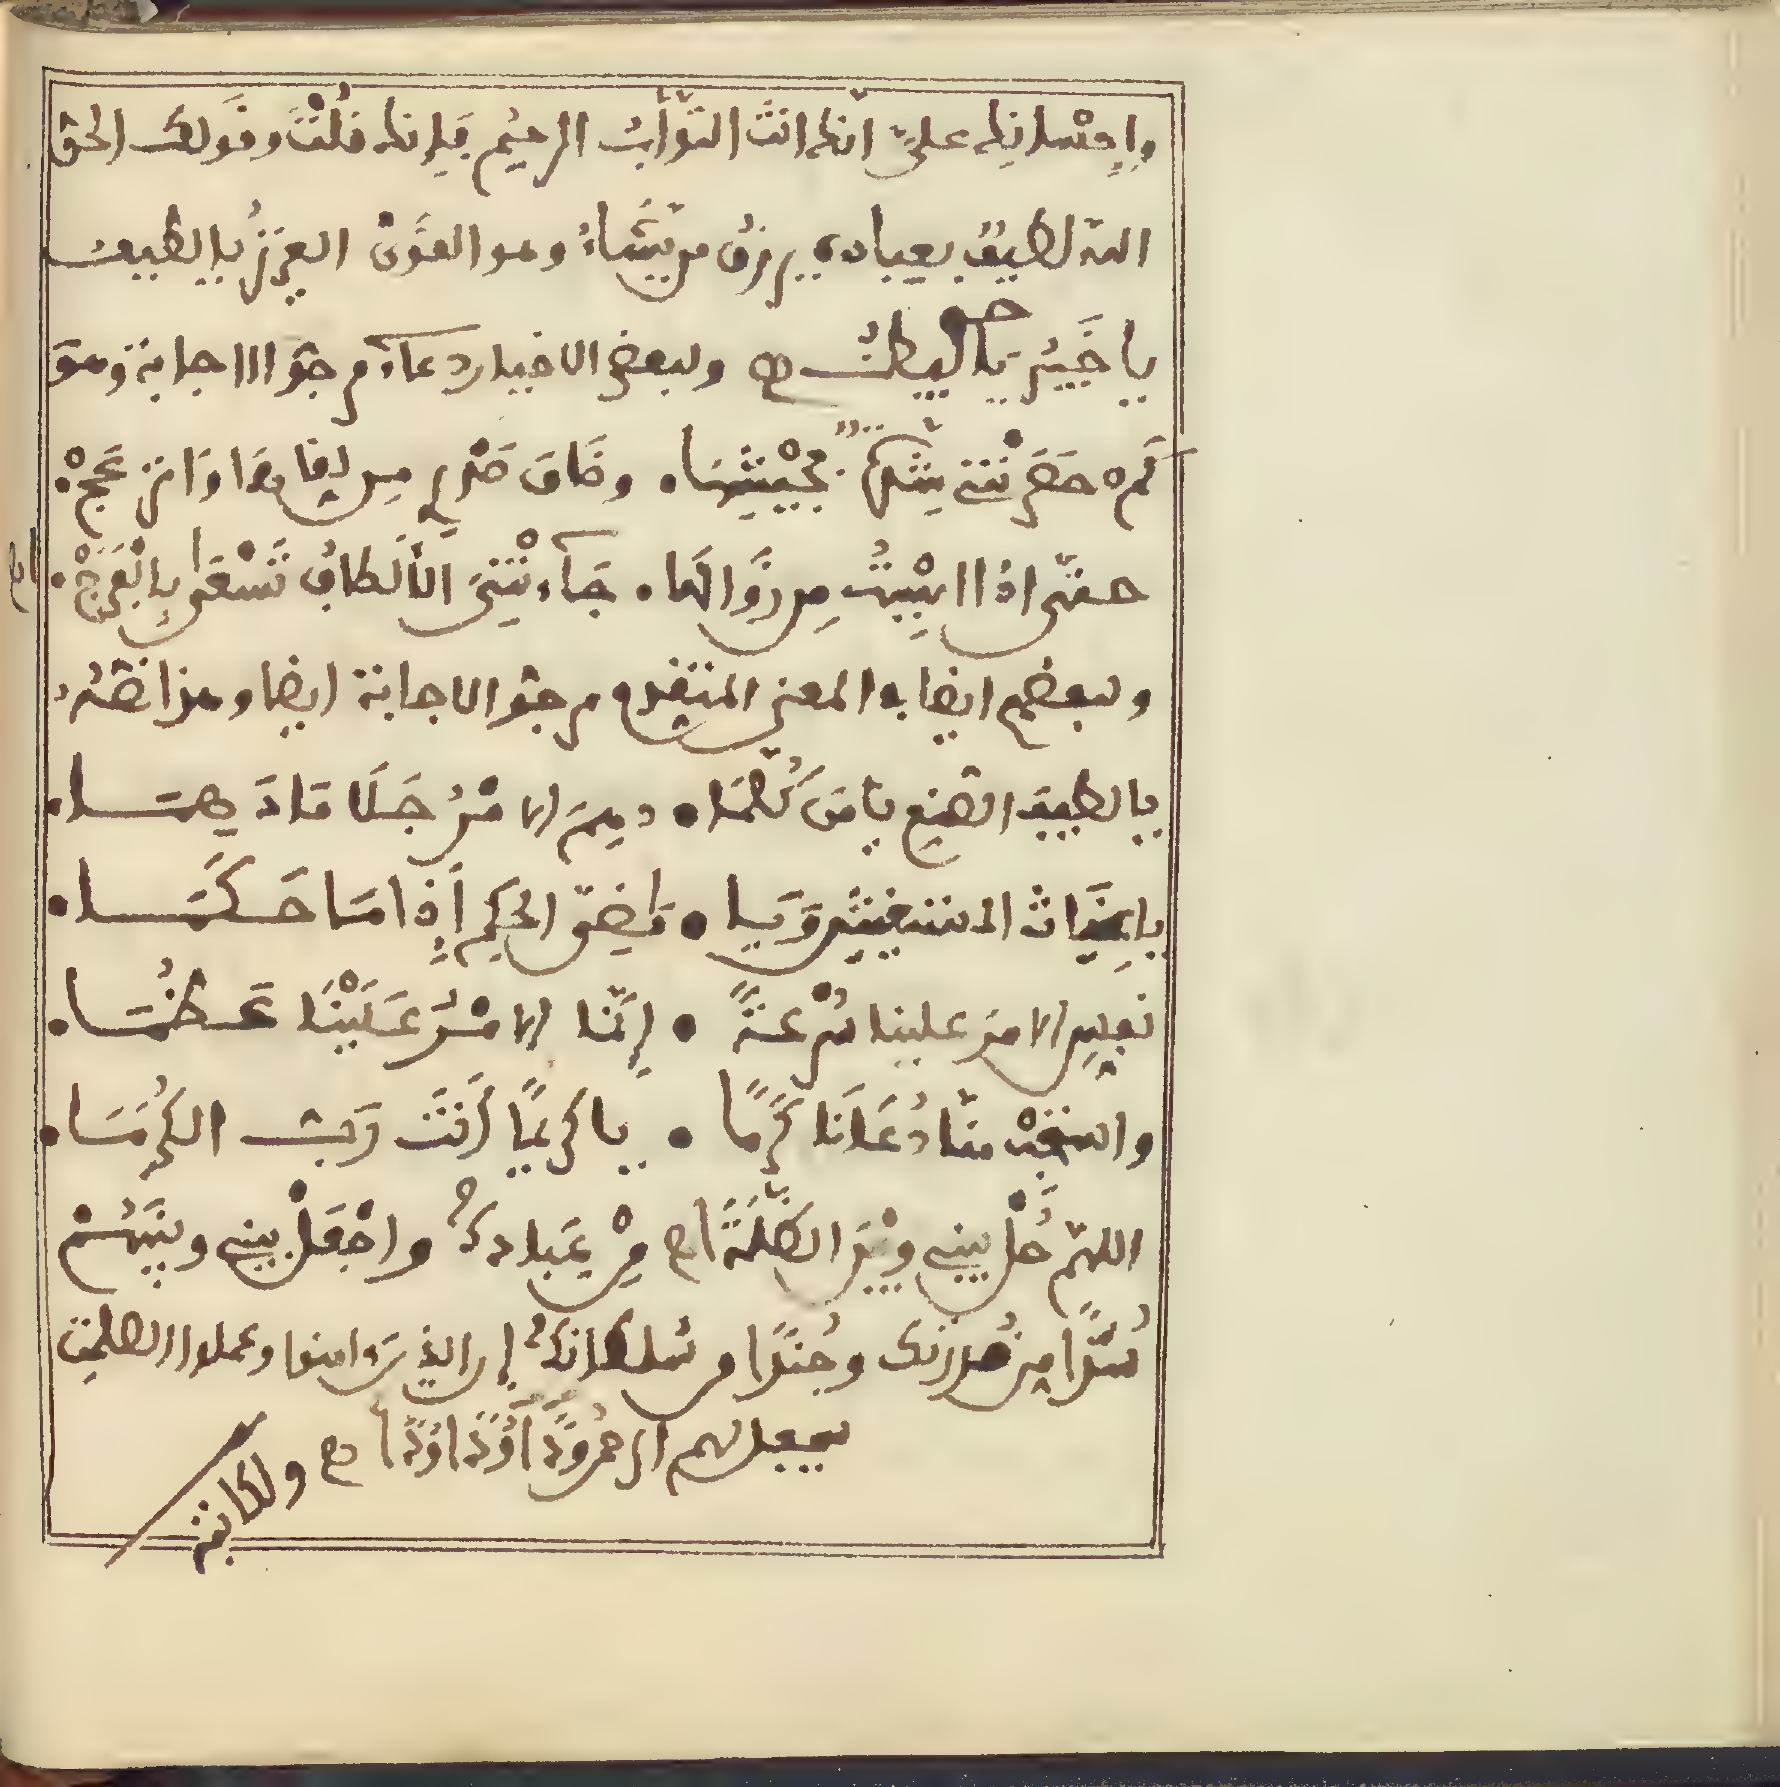 وإحسانك عليّ انك انت التوّاب الرحيم فإنك قُلْتَ وقَولك الحق
اللّه لطيف بعباده يرزق من يَّشاء وهو القَوىّ العزيزُ يا لطيف
يا خَبيرُ يا لطيف ولبعض الاخيار دعاء مرجو الاجابة وهو
كم حَضَرَتْنِي شدّة بجَيْشِهَا • وضَاقَ صَدْرِي مِن لِقاها وَانزعَجْ •
حتّى اذا ايِسْتُ مِن زَوَالِهَا • جَاءَتْنِيَ الألْطافُ تَسْعَى بِالْفَرَجْ •
ولبعضهم ايضا في المعنى المتقدم مرجو الاجابة ايضا وهذا نصّه
يا لطيفَ الصنع يا من كُلَّمَا • دهِمَ الامْرُ جَلَا مَا دَهِمَا •
يا غِيَاثَ المستغيثين وَيَا • مَاضِيَ الحكم إذا مَا حَكَمَا •
نفِّس الامر علينا سُرْعةً • إنَّمَا الامْرُ عَلَيْنَا عَظُمَا •
واستجبْ منّا دُعَانَا كَرَمًا • يا كريمًا أنتَ رَبُّ الكُرَمَا •
اللهمّ حُلْ بيني وبَيْنَ الظَّلَمَةِ مِنْ عِبَادِكَ واجْعَلْ بيني وبَيْنَهُمْ
سُدًّا من قدرتك وجُندًا من سُلطانِكَ إن الذين ءامنوا وعملوا الصلحت
سيجعل لهم الرحمن وُدًّا وُدًّا وُدًّا ولكاتبه